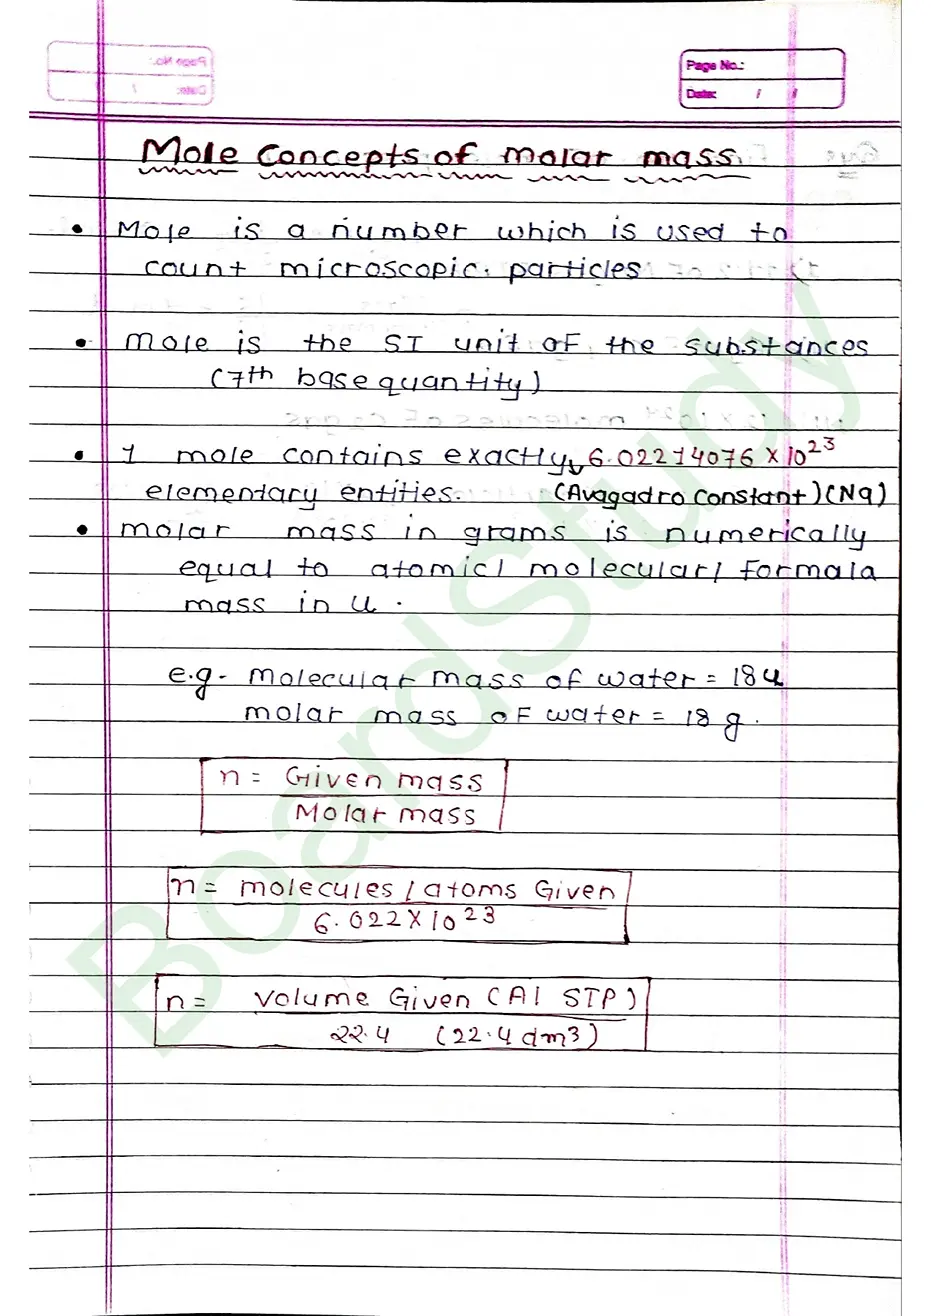 Page No.:
Date: / /
Mole Concepts of molar mass.
• Mole is a number which is used to
count microscopic. particles
• Mole is the SI unit of the substances
(7th base quantity)
• 1 mole contains exactly 6.02214076 × 10²³
elementary entities. (Avagadro constant) (Na)
• molar mass in grams is numerically
equal to atomic/ molecular/ formala
mass in u.
e.g- molecular mass of water = 18u
molar mass of water = 18 g.
n = Given mass
Molar mass
n = molecules / atoms Given
6.022 X 10²³
n = Volume Given (At STP)
22.4 (22.4 dm3)
BoardStudy